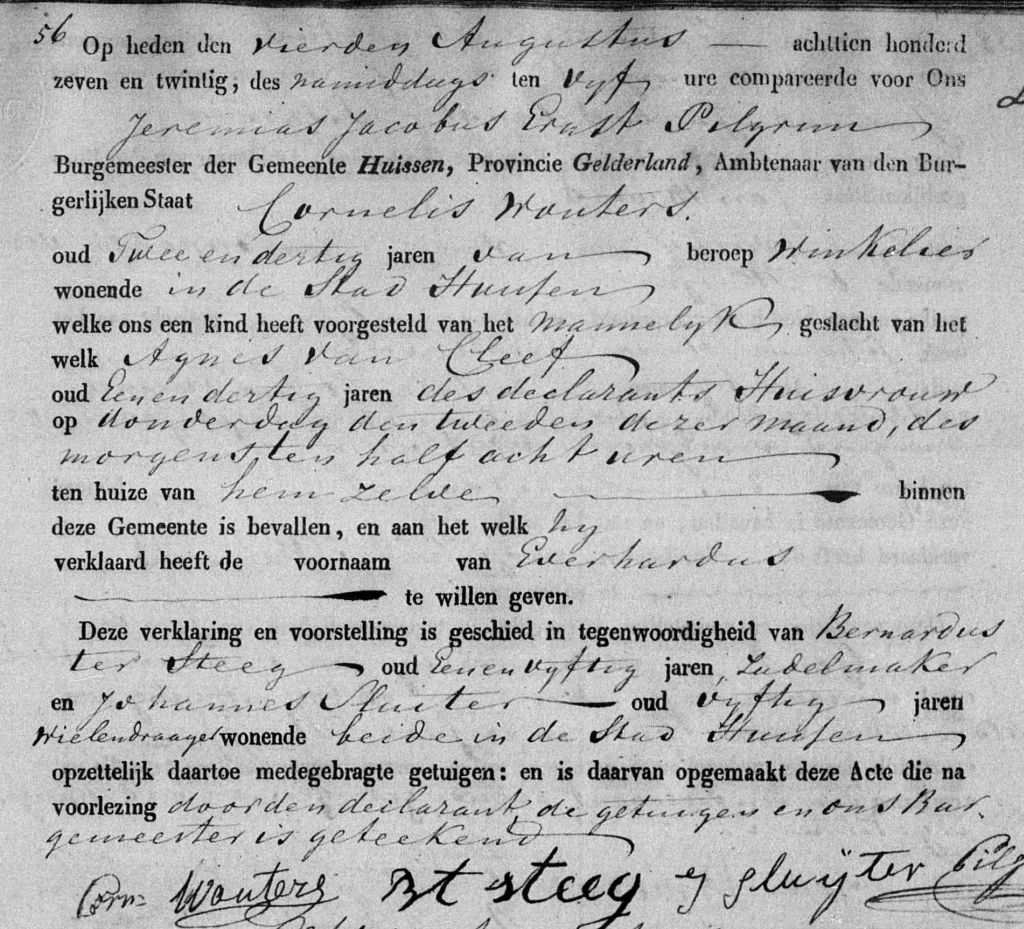 56
Op heden den vierden Augustus — achttien honderd
zeven en twintig, des namiddags ten vyf ure compareerde voor Ons
Jeremias Jacobus Ernst Pilgrim
Burgemeester der Gemeente Huissen, Provincie Gelderland, Ambtenaar van den Bur-
gerlijken Staat Cornelis Wouters.
oud Twee en dertig jaren van beroep Winkelier
wonende in de Stad Huissen
welke ons een kind heeft voorgesteld van het mannelyk geslacht van het
welk Agnes van Cleef
oud Eenen dertig jaren des declarants Huisvrouw
op donderdag den tweeden dezer maand, des
morgens ten half acht uren
ten huize van hem zelve — binnen
deze Gemeente is bevallen, en aan het welk hy
verklaard heeft de voornaam van Everhardus
— te willen geven.
Deze verklaring en voorstelling is geschied in tegenwoordigheid van Bernardus
ter Steeg oud Eenen vyftig jaren, Zadelmaker
en Johannes Sluiter — oud vyftig jaren
wonende beide in de Stad Huissen
opzettelijk daartoe medegebragte getuigen: en is daarvan opgemaakt deze Acte die na
voorlezing door den declarant, de getuigen en ons Bur-
gemeester is geteekend
Corn: Wouters Bt steeg J sluÿter Pilg